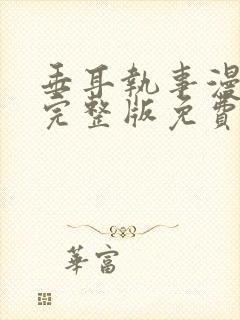 垂耳執事漫
完整版免費
華富